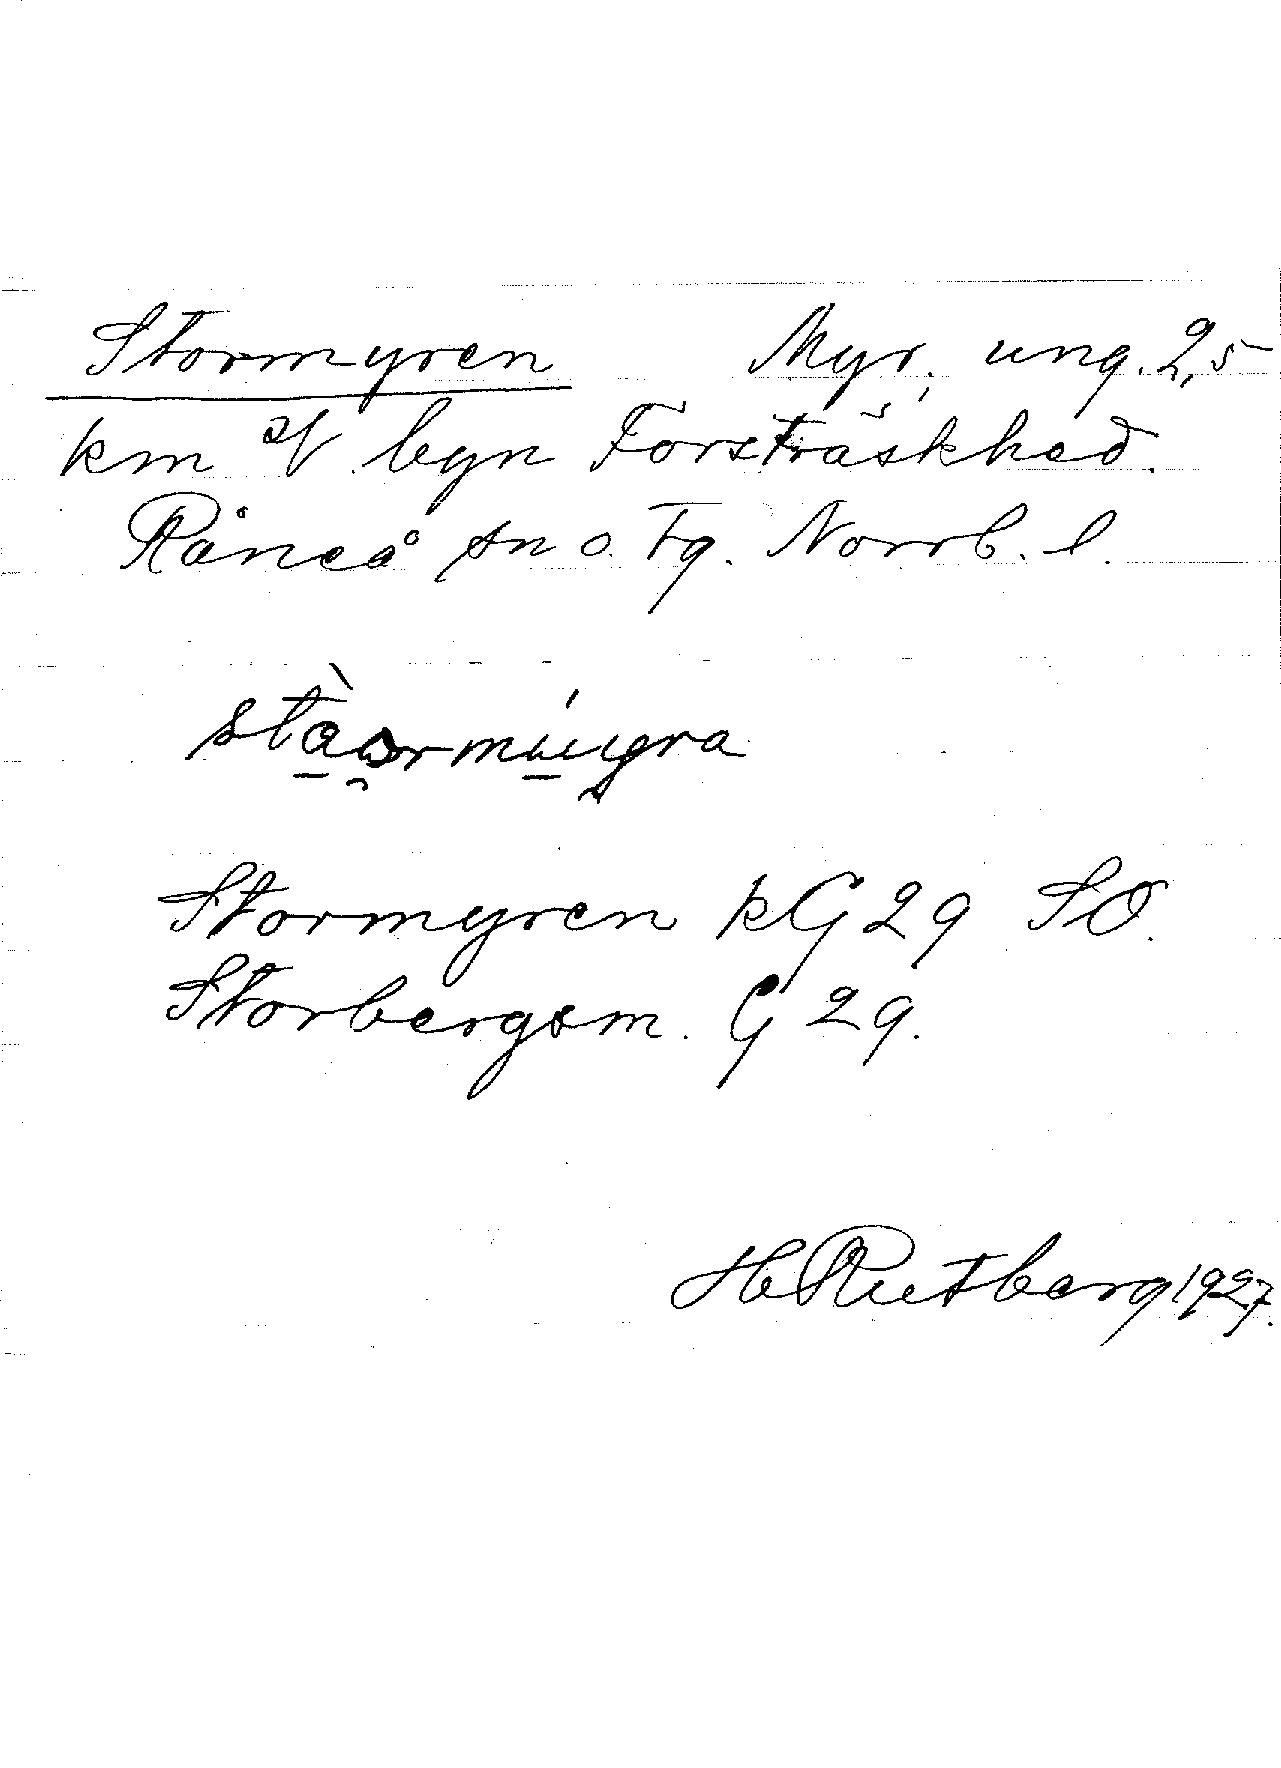 Stormyren Myr, ung. 2,5
km V byn Forsträskhed.
Råneå sn o. tg. Norrb. l.
Stormyren kG 29 SO.
Storbergsm. G 29.
H Rutberg 1927.